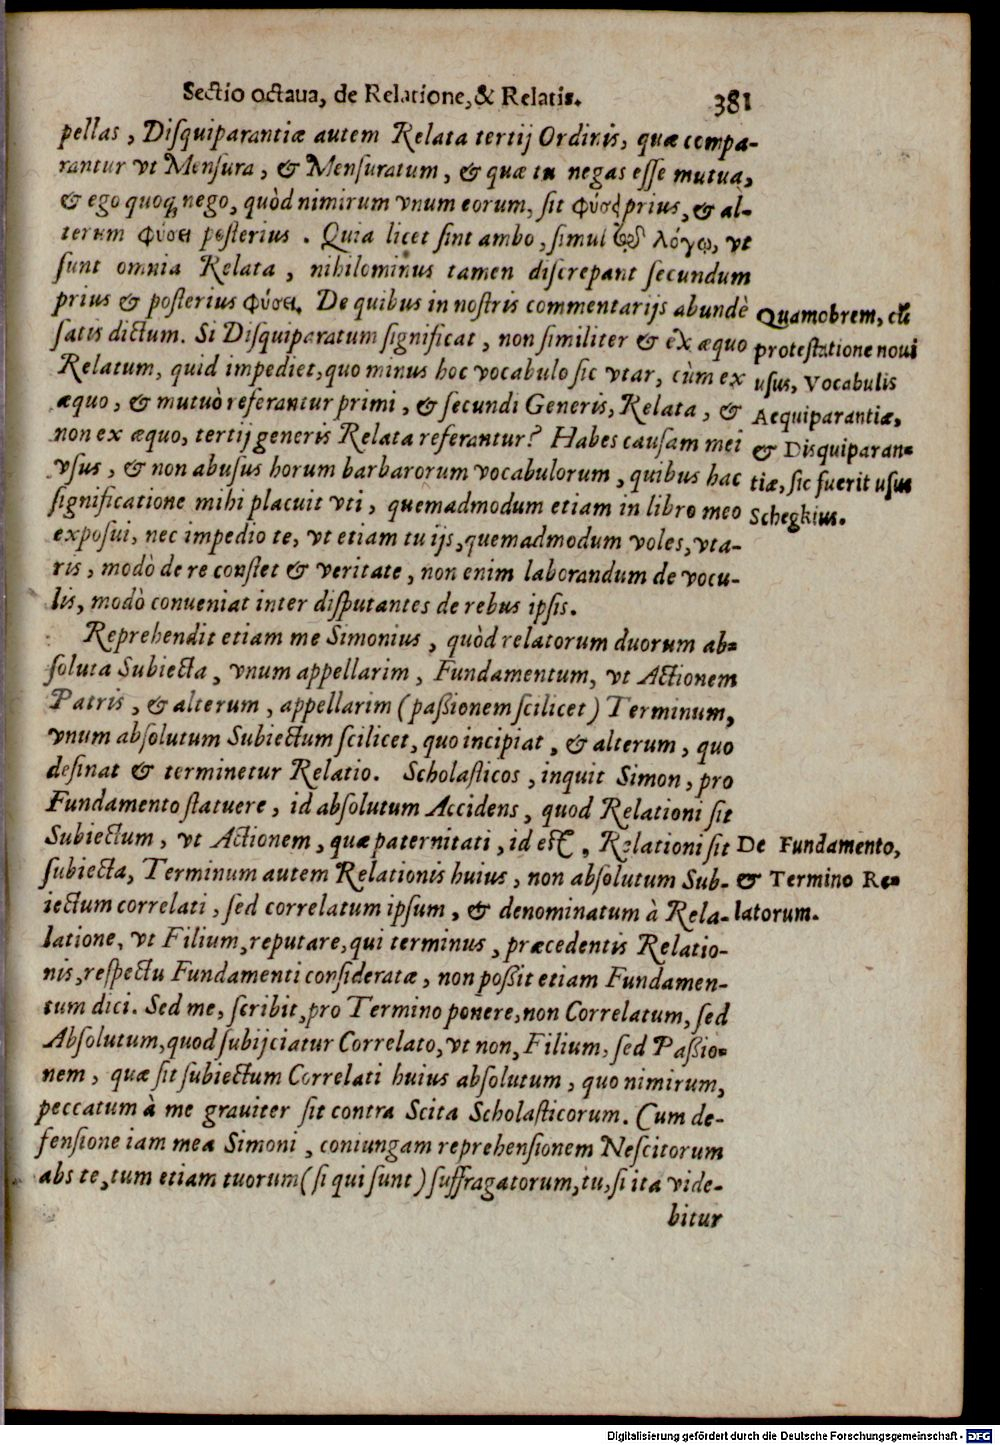 Sectio octaua, de Relatione, & Relatis. 381
pellas, Diſquiparantiæ autem Relata tertij Ordinis, quæ compa-
rantur vt Menſura, & Menſuratum, & quæ tu negas eſſe mutua,
& ego quoq; nego, quòd nimirum vnum eorum, ſit φύσει prius, & al-
terum φύσει poſterius. Quia licet ſint ambo, ſimul τῷ λόγῳ, vt
ſunt omnia Relata, nihilominus tamen diſcrepant ſecundum
prius & poſterius φύσει. De quibus in noſtris commentarijs abundè
ſatis dictum. Si Diſquiparatum ſignificat, non ſimiliter & ex æquo
Relatum, quid impediet, quo minus hoc vocabulo ſic vtar, cùm ex
æquo, & mutuò referantur primi, & ſecundi Generis, Relata, &
non ex æquo, tertij generis Relata referantur? Habes cauſam mei
vſus, & non abuſus horum barbarorum vocabulorum, quibus hac
ſignificatione mihi placuit vti, quemadmodum etiam in libro meo
expoſui, nec impedio te, vt etiam tu ijs, quemadmodum voles, vta-
ris, modò de re conſtet & veritate, non enim laborandum de vocu-
lis, modò conueniat inter diſputantes de rebus ipſis.
Quamobrem, cũ
proteſtatione noui
uſus, Vocabulis
Aequiparantiæ,
& Diſquiparan-
tiæ, ſic fuerit uſus
Schegkius.
Reprehendit etiam me Simonius, quòd relatorum duorum ab-
ſoluta Subiecta, vnum appellarim, Fundamentum, vt Actionem
Patris, & alterum, appellarim (paßionem ſcilicet) Terminum,
vnum abſolutum Subiectum ſcilicet, quo incipiat, & alterum, quo
deſinat & terminetur Relatio. Scholaſticos, inquit Simon, pro
Fundamento ſtatuere, id abſolutum Accidens, quod Relationi ſit
Subiectum, vt Actionem, quæ paternitati, id eſt, Relationi ſit
ſubiecta, Terminum autem Relationis huius, non abſolutum Sub-
iectum correlati, ſed correlatum ipſum, & denominatum à Rela-
latione, vt Filium, reputare, qui terminus, præcedentis Relatio-
nis, reſpectu Fundamenti conſideratæ, non poßit etiam Fundamen-
tum dici. Sed me, ſcribit, pro Termino ponere, non Correlatum, ſed
Abſolutum, quod ſubijciatur Correlato, vt non, Filium, ſed Paßio-
nem, quæ ſit ſubiectum Correlati huius abſolutum, quo nimirum,
peccatum à me grauiter ſit contra Scita Scholaſticorum. Cum de-
fenſione iam mea Simoni, coniungam reprehenſionem Neſcitorum
abs te, tum etiam tuorum (ſi qui ſunt) ſuffragatorum, tu, ſi ita vide-
bitur
De Fundamento,
& Termino Re-
latorum.
Digitalisierung gefördert durch die Deutsche Forschungsgemeinschaft - DFG